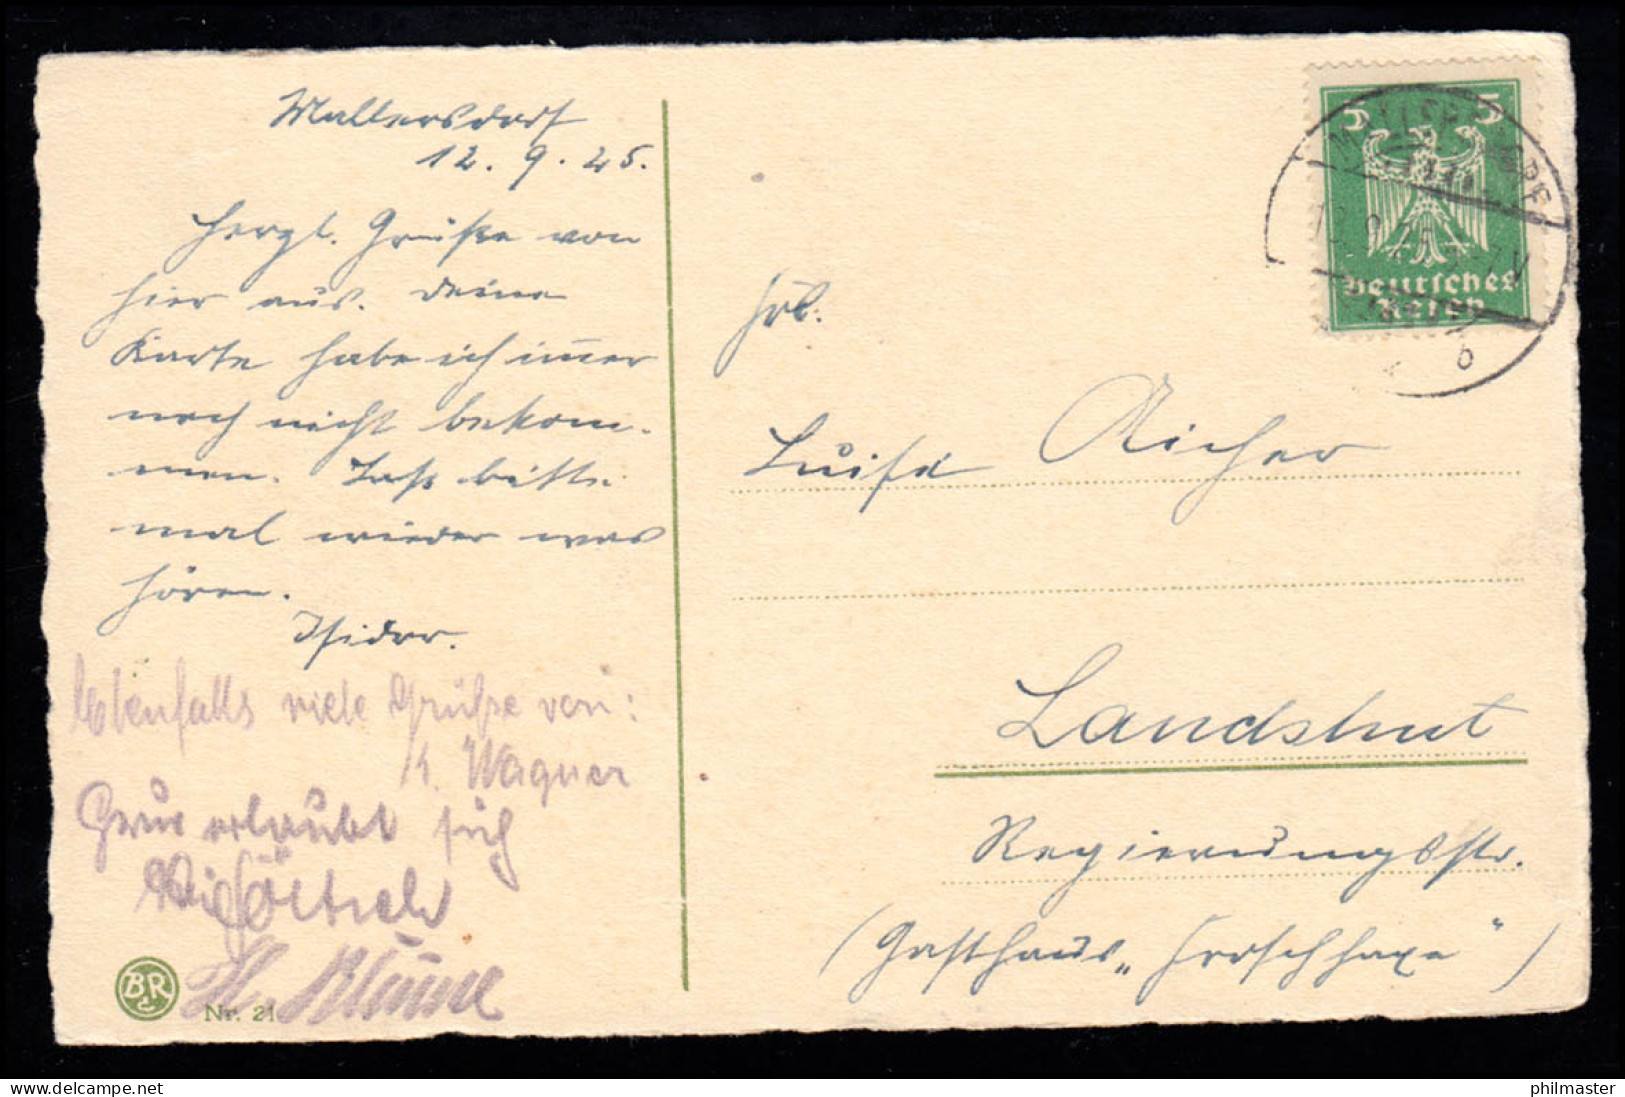 Mallersdorf
12. 9. 25.
Herzl. Grüße von
hier aus. Deine
Karte habe ich immer
noch nicht bekom-
men. Laß bitte
mal wieder was
hören.
Isidor.
Ebenfalls viele Grüße von:
K. Wagner
Gruß erlaubt sich
H. Blüml
BR
Nr. 21
5 5
Deutsches
Reich
MALLERSDORF
b
Frl.
Luise Aicher
Landshut
Regierungsstr.
(Gasthaus „Froschhaxe")
philmaster